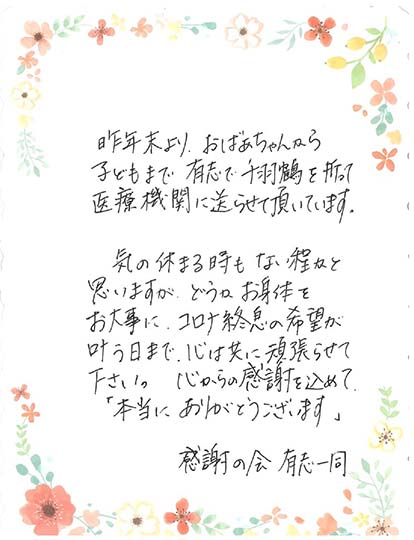 昨年末より、おばあちゃんから
子どもまで 有志で千羽鶴を折って
医療機関に送らせて頂いています。
気の休まる時もない程かと
思いますが、どうか お身体を
お大事に、コロナ終息の希望が
叶う日まで、心は共に頑張らせて
下さい。 心からの感謝を込めて、
「本当に ありがとうございます」
感謝の会 有志一同